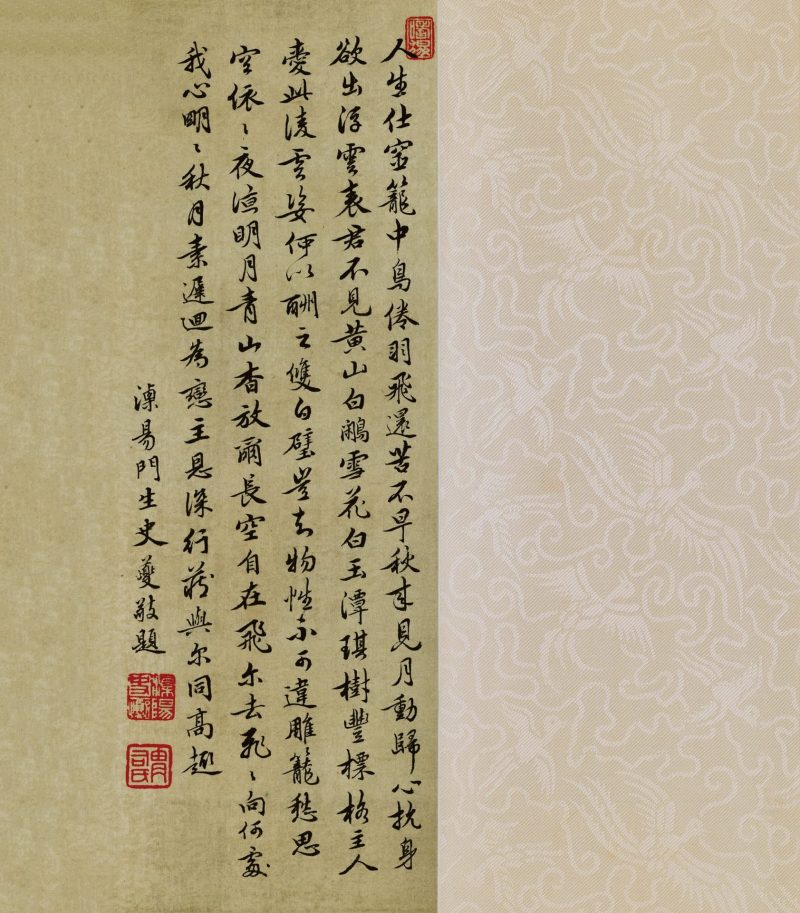 人生仕宦籠中鳥倦羽飛還苦不早秋來見月動歸心抗身
欲出浮雲表君不見黃山白鷴雪花白玉潭琪樹豐標格主人
愛此淩雲姿何以酬之雙白璧豈知物性不可違雕籠愁思
空依〻夜深明月青山杳放爾長空自在飛尔去飛〻向何處
我心明〻秋月素遲迴為戀主恩深行藏與尔同高趣
溧昜門生史夔敬題